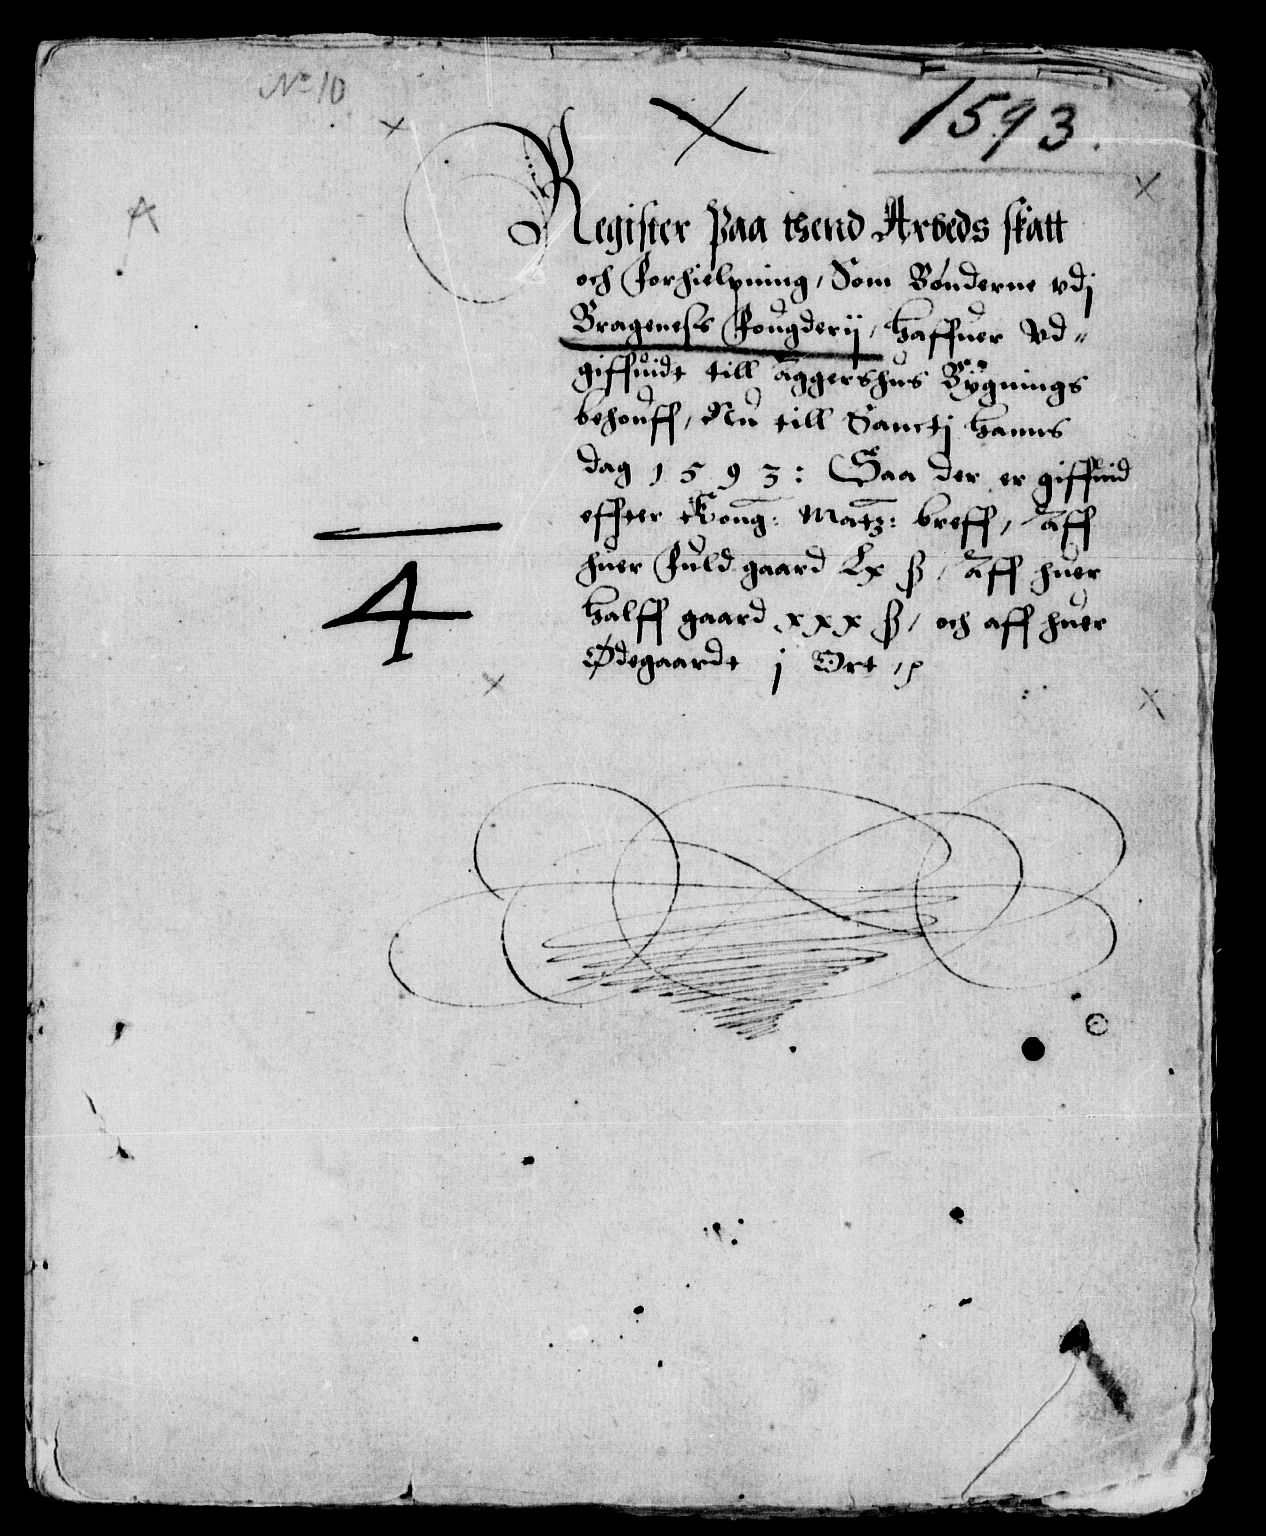 No 10
1593.
A
Register paa thend Arbeds skatt
och Forhielpning, Som Bønderne vdj
Brageness Fougderij, haffuer Vd=
giffuidt till Aggershus Bygnings
behouff, Nu till Sanctj Hanns
dag 1593: Saa der er giffuid
effter Kong: Matz: breff, Aff
huer Fuld gaard Lx ß, Aff huer
Halff gaard xxx ß, och aff huer
Ødegaardt j Ort
4